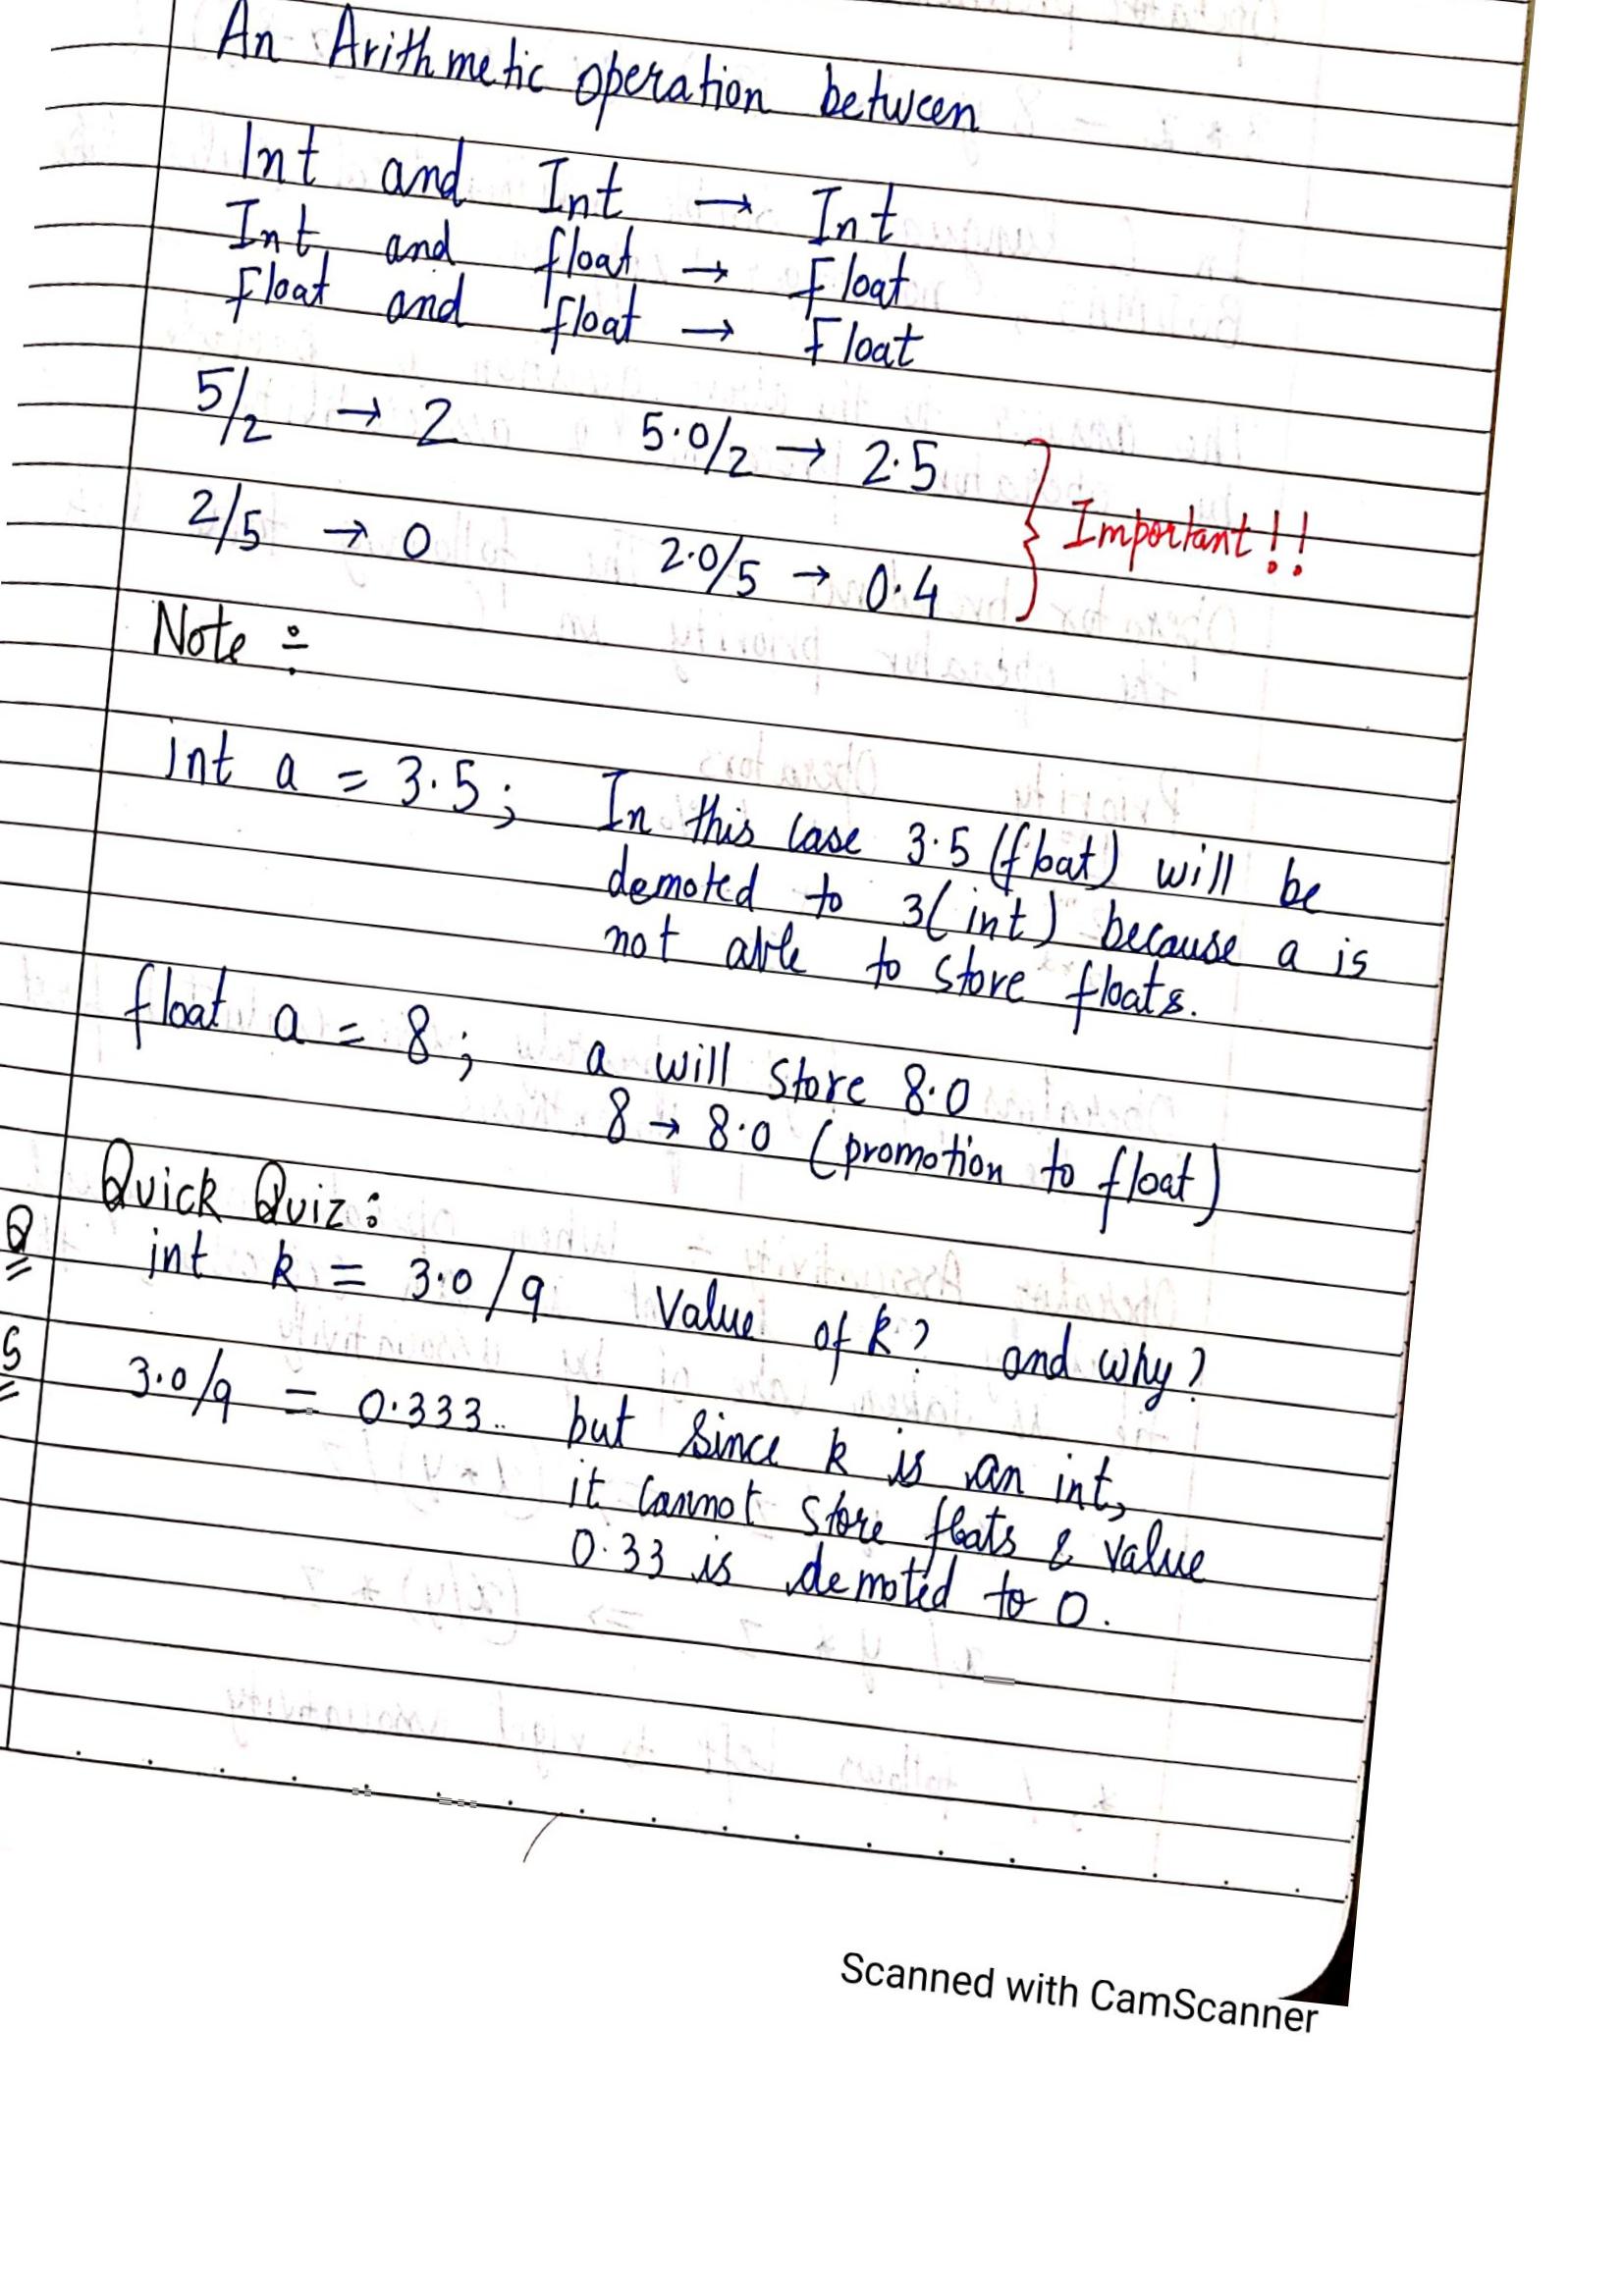 An Arithmetic operation between
Int and Int → Int
Int and float → Float
Float and float → Float
5/2 → 2 5.0/2 → 2.5
Important!!
2/5 → 0 2.0/5 → 0.4
Note :-
int a = 3.5; In this case 3.5 (float) will be
demoted to 3(int) because a is
not able to store floats.
float a = 8; a will store 8.0
8 → 8.0 (promotion to float)
Quick Quiz:
Q int k = 3.0/9 Value of k? and why?
S 3.0/9 = 0.333.. but since k is an int,
it cannot store floats & value
0.33 is demoted to 0.
Scanned with CamScanner